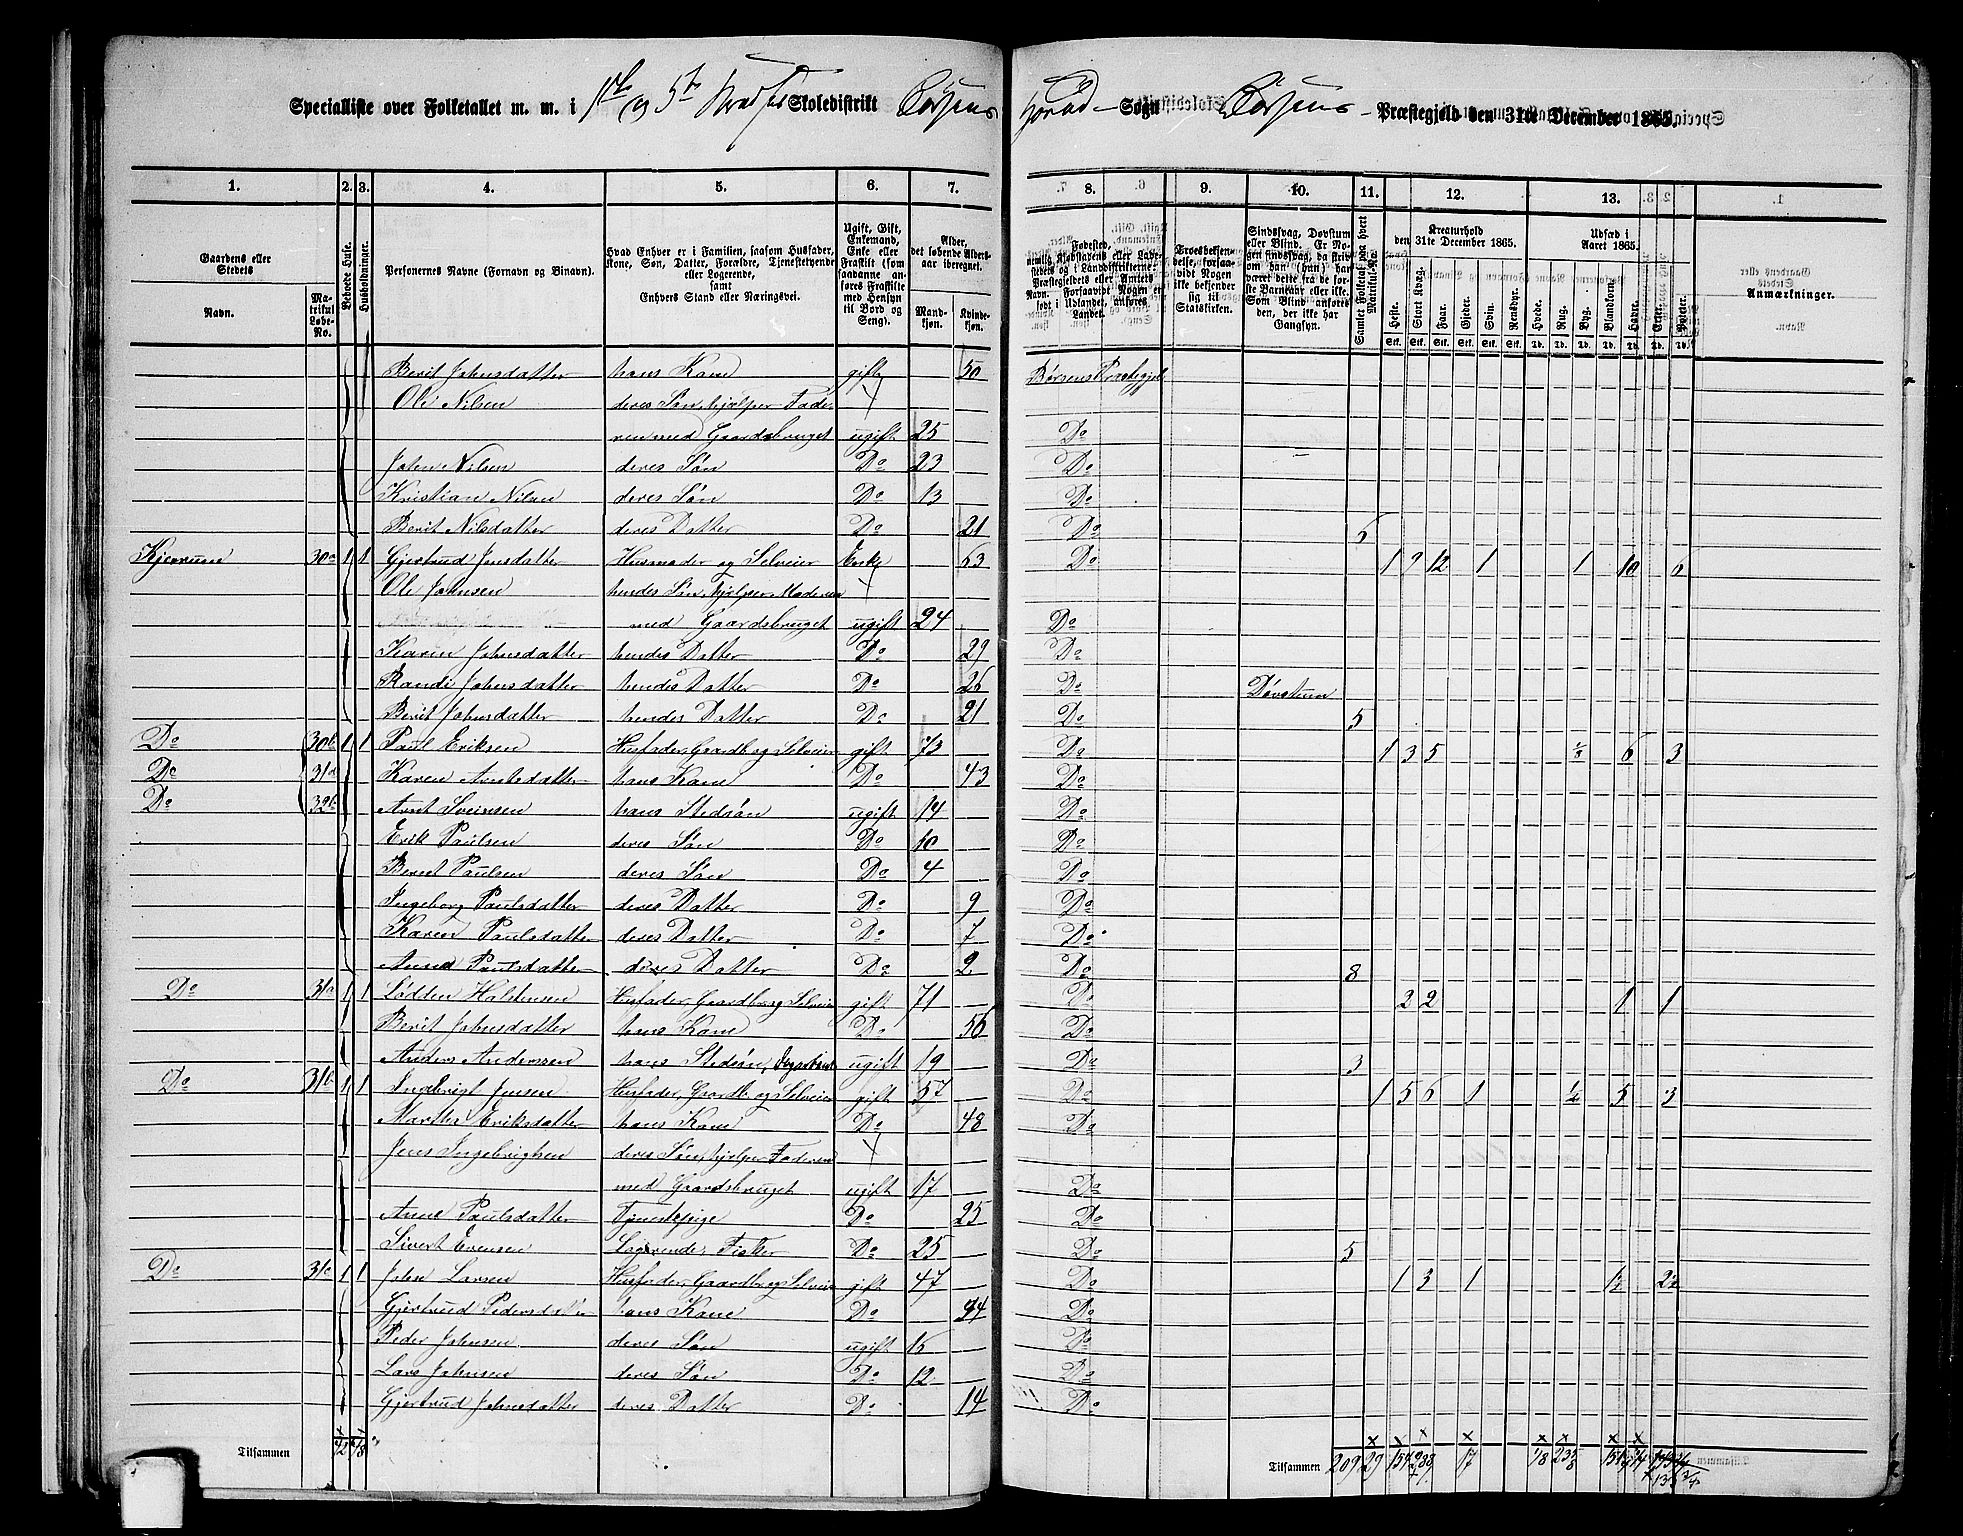 Specialliste over Folketallet m. m. i 1ste og 5te Skoledistrikt Børsens Sogn Børsens Præstegjeld den 31te December 1865.
1. 2. 3. 4. 5. 6. 7. 8. 9. 10. 11. 12. 13.
Gaardens eller Stedets Navn. Matrikul Løbe-No.
Beboede Huse.
Husholdninger.
Personernes Navne (Fornavn og Binavn).
Hvad Enhver er i Familien, saasom Husfader, Kone, Søn, Datter, Forældre, Tjenestetyende eller Logerende, samt Enhvers Stand eller Næringsvei.
Ugift, Gift, Enkemand, Enke eller Fraskilt (som saadanne anføres Fraskilte med Hensyn til Bord og Seng).
Alder, det løbende Aldersaar iberegnet. Mandkjøn. Kvindekjøn.
Troesbekjendelse, forsaavidt Nogen ikke bekjender sig til Statskirken.
Samlet Folketal paa hvert Matrikul-No.
Kreaturhold den 31te December 1865.
Heste. Stort Kvæg. Faar. Gjeder. Svin. Rensdyr.
Udsæd i Aaret 1865.
Hvede. Rug. Byg. Blandkorn. Havre. Erter. Poteter.
Anmærkninger.
Berit Johnsdatter hans Kone gift 50 Børsens Præstegjel
Ole Nilsen deres Søn, hjælper Fade-
ren med Gaardsbruget ugift 25 Do
John Nilsen deres Søn Do 23 Do
Kristian Nilsen deres Søn Do 13 Do
Berit Nilsdatter deres Datter Do 21 Do 6
Kjerrum 30a 1 1 Gjertrud Jensdatter Husmoder og Selveier Enke 63 Do 1 9 12 1 1 10 6
Ole Johnsen hendes Søn, hjælper Moderen
med Gaardsbruget ugift 24 Do
Karen Johnsdatter hendes Datter Do 29 Do
Randi Johnsdatter hendes Datter Do 26 Do Døvstum
Berit Johnsdatter hendes Datter Do 21 Do 5
Do 30b 1 1 Paul Eriksen Husfader, Gaardb. og Selveier gift 73 Do 1 3 5 6 3
Do 31d Karen Arntsdatter hans Kone Do 43 Do
Do 32b Arnt Svensen hans Stedsøn ugift 14 Do
Erik Paulsen deres Søn Do 10 Do
Bernt Paulsen deres Søn Do 4 Do
Ingeborg Paulsdatter deres Datter Do 9 Do
Karen Paulsdatter deres Datter Do 7 Do
Anne Paulsdatter deres Datter Do 2 Do 8
Do 31a 1 1 Lodden Halstensen Husfader, Gaardb. og Selveier gift 71 Do 2 2 1 1
Berit Johnsdatter hans Kone Do 56 Do
Anders Anderssen hans Stedsøn, ugift 19 Do 3
Do 31b 1 1 Ingebrigt Jensen Husfader, Gaardb. og Selveier gift 57 Do 1 5 6 1 ¼ 5 3
Marthe Eriksdatter hans Kone Do 48 Do
Jens Ingebrigtsen deres Søn, hjælper Faderen
med Gaardsbruget ugift 17 Do
Anne Paulsdatter Tjenestepige Do 25 Do
Sivert Evensen Logerende, Fisker Do 25 Do 5
Do 31c 1 1 John Larsen Husfader, Gaardb. og Selveier gift 47 Do 1 3 1 1½ 2½
Gjertrud Pedersdatter hans Kone Do 44 Do
Peder Johnsen deres Søn ugift 15 Do
Lars Johnsen deres Søn Do 12 Do
Gjertrud Johnsdatter deres Datter Do 14 Do
Tilsammen 42 48
Tilsammen 209 29